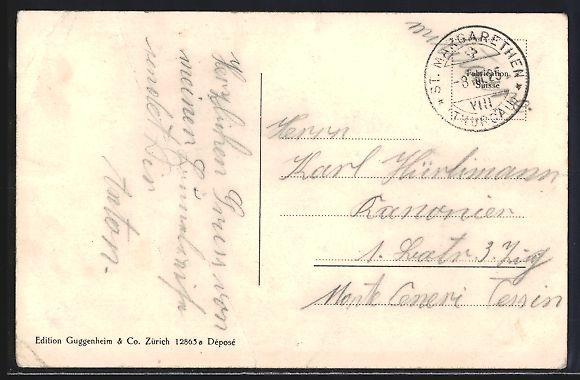 Herzlichen Gruss von
meinen
sendet Dir
Anton.
ST. MARGARETHEN
Fabrication
Suisse
VIII
(THURGAU)
Herrn
Karl Hürlimann
Kanonier
1. Batr. 3. Zug
Monte Ceneri Tessin
Edition Guggenheim & Co. Zürich 12865a Déposé